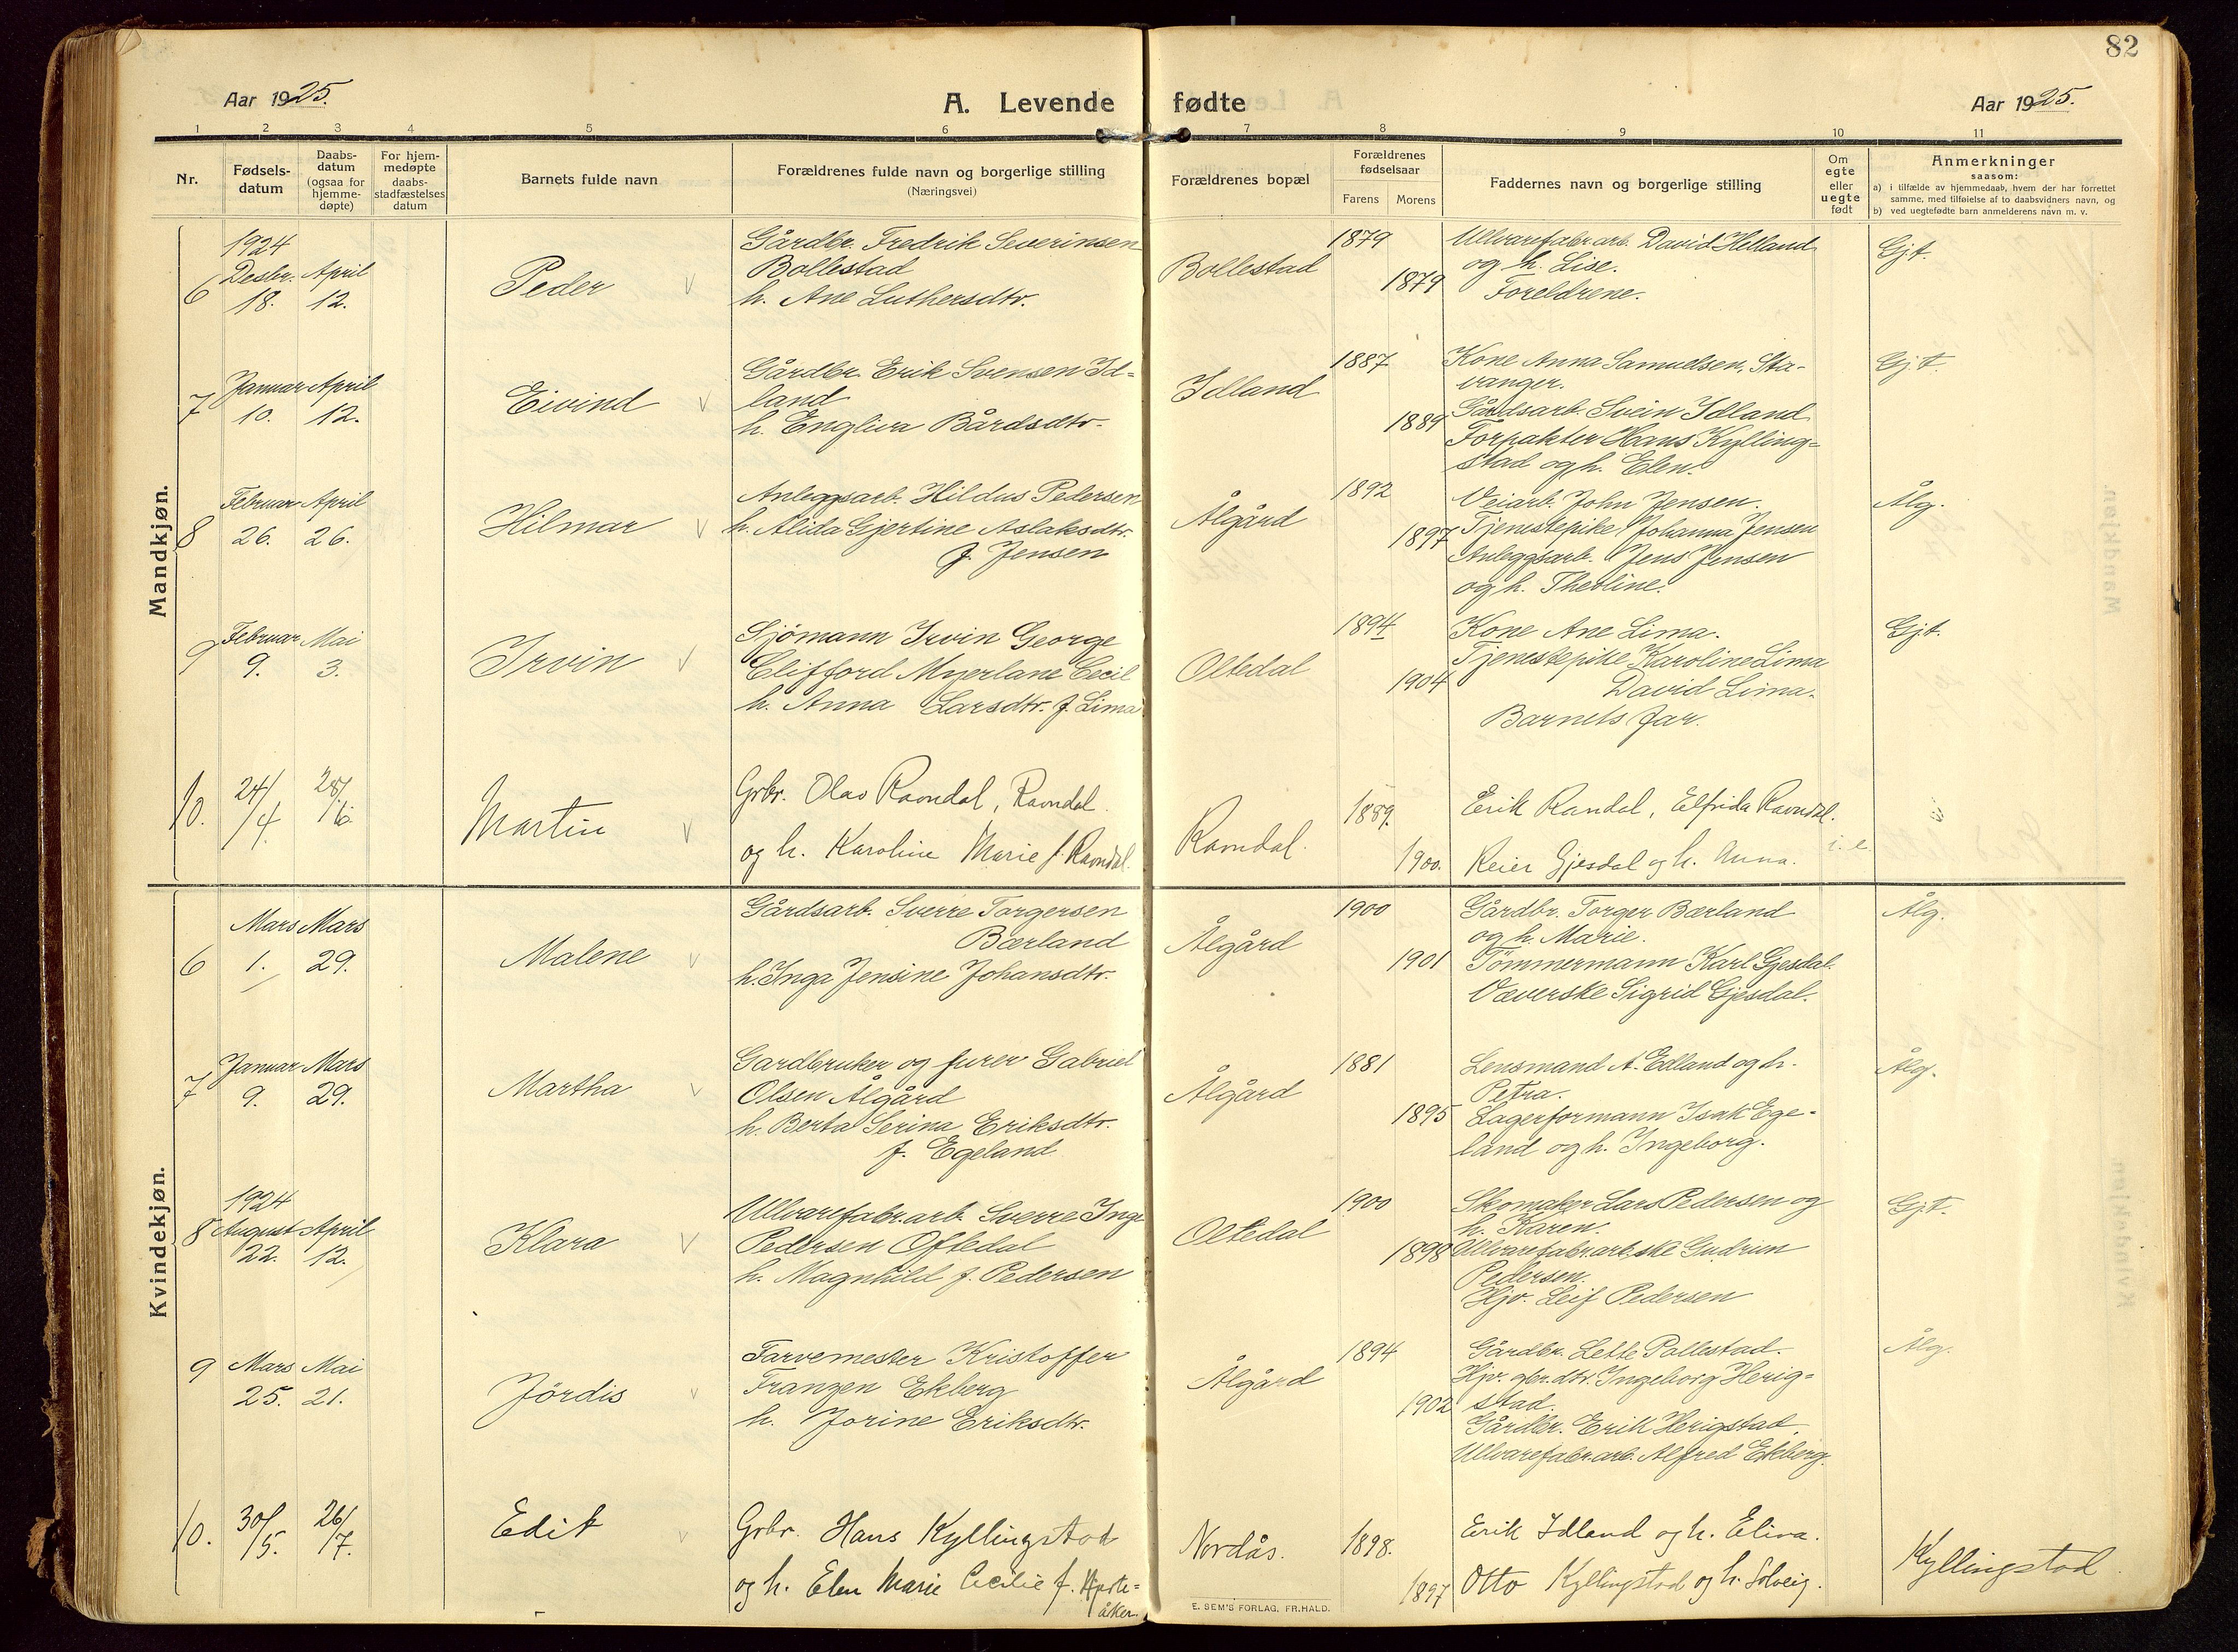 82
Aar 1925.
A. Levende fødte
Aar 1925.
1 2 3 4 5 6 7 8 9 10 11
Nr.
Fødsels-
datum
Daabs-
datum
(ogsaa for
hjemme-
døpte)
For hjem-
medøpte
daabs-
stadfæstelses
datum
Barnets fulde navn
Forældrenes fulde navn og borgerlige stilling
(Næringsvei)
Forældrenes bopæl
Forældrenes
fødselsaar
Farens Morens
Faddernes navn og borgerlige stilling
Om
egte
eller
uegte
født
Anmerkninger
saasom:
a) i tilfælde av hjemmedaab, hvem der har forrettet
samme, med tilføielse af to daabsvidners navn, og
b) ved uegtefødte barn anmelderens navn m. v.
Mandkjøn.
6
1924
Desbr. April
18. 12.
Peder
Gårdbr. Fredrik Severinsen
Bollestad
h. Ane Luthersdtr.
Bollestad
1879
1879
Ullvarefabr.arb. David Helland
og h. Lise.
Foreldrene.
Gjt.
7
Januar April
10. 12.
Eivind
Gårdbr. Erik Svensen Id-
land
h. Engliva Bårdsdtr.
Idland
1887
1889
Kone Anna Samuelsen, Sta-
vanger.
Gårdsarb. Svein Idland
Forpakter Hans Kylling-
stad og h. Elen.
Gjt.
8
Februar April
26. 26.
Hilmar
Anleggsarb. Hildus Pedersen
h. Alida Gjertine Aslaksdtr.
f. Jensen
Ålgård
1892
1897
Veiarb. John Jensen.
Tjenestepike Johanna Jensen
Anleggsarb. Jens Jensen
og h. Theoline.
Ålg.
9
Februar Mai
9. 3.
Irvin
Sjömann Irvin George
Clifford Myerlane Cecil
h. Anna Larsdtr. f. Lima
Oltedal
1894
1904
Kone Ane Lima.
Tjenestepike Karoline Lima
David Lima.
Barnets far.
Gjt.
10.
24/4. 28/6.
Martin
Grbr. Olav Ravndal, Ravndal.
og h. Karoline Marie f. Ravndal.
Ravndal.
1889.
1900.
Erik Randal, Elfrida Ravndal.
Reier Gjesdal og h. Anna.
Kvindekjøn.
6
Mars Mars
1. 29.
Malene
Gårdsarb. Sverre Torgersen
Bærland
h. Inga Jensine Johansdtr.
Ålgård
1900
1901
Gårdbr. Torger Bærland
og h. Marie.
Tömmermann Karl Gjesdal.
Væverske Sigrid Gjesdal.
Ålg.
7
Januar Mars
9. 29.
Martha
Gardbruker og furer Gabriel
Olsen Ålgård
h. Berta Serina Eriksdtr.
f. Egeland
Ålgård
1881
1895
Lensmand A. Edland og h.
Petra.
Lagerformann Isak Ege-
land og h. Ingeborg.
Ålg.
8
1924
August April
22. 12.
Klara
Ullvarefabr.arb. Sverre Inge
Pedersen Oftedal
h. Magnhild f. Pedersen
Oltedal
1900
1898
Skomaker Lars Pedersen og
h. Karen.
Ullvarefabr.arb.ske Gudrun
Pedersen.
Hjv. Leif Pedersen
Gjt.
9
Mars Mai
25. 21.
Jördis
Farvemester Kristoffer
Franzen Ekberg
h. Jorine Eriksdtr.
Ålgård
1894
1902
Gårdbr. Lette Pollestad.
Hjv. gbr.dtr. Ingeborg Herig-
stad.
Gårdbr. Erik Herigstad.
Ullvarefabr.arb. Alfred Ekberg.
Ålg.
10.
30/5. 26/7.
Edit
Grbr. Hans Kyllingstad
og h. Elen Marie Cecilie f.
åker.
Nordås.
1898.
1897
Erik Idland og h. Eliva.
Otto Kyllingstad og h. Solveig.
Kyllingstad
E. SEM'S FORLAG, FR.HALD.